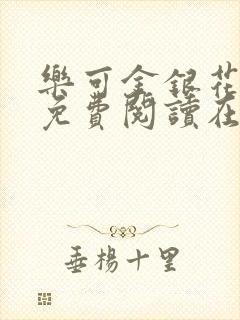 樂可金銀花
免費閱讀在
垂楊十里